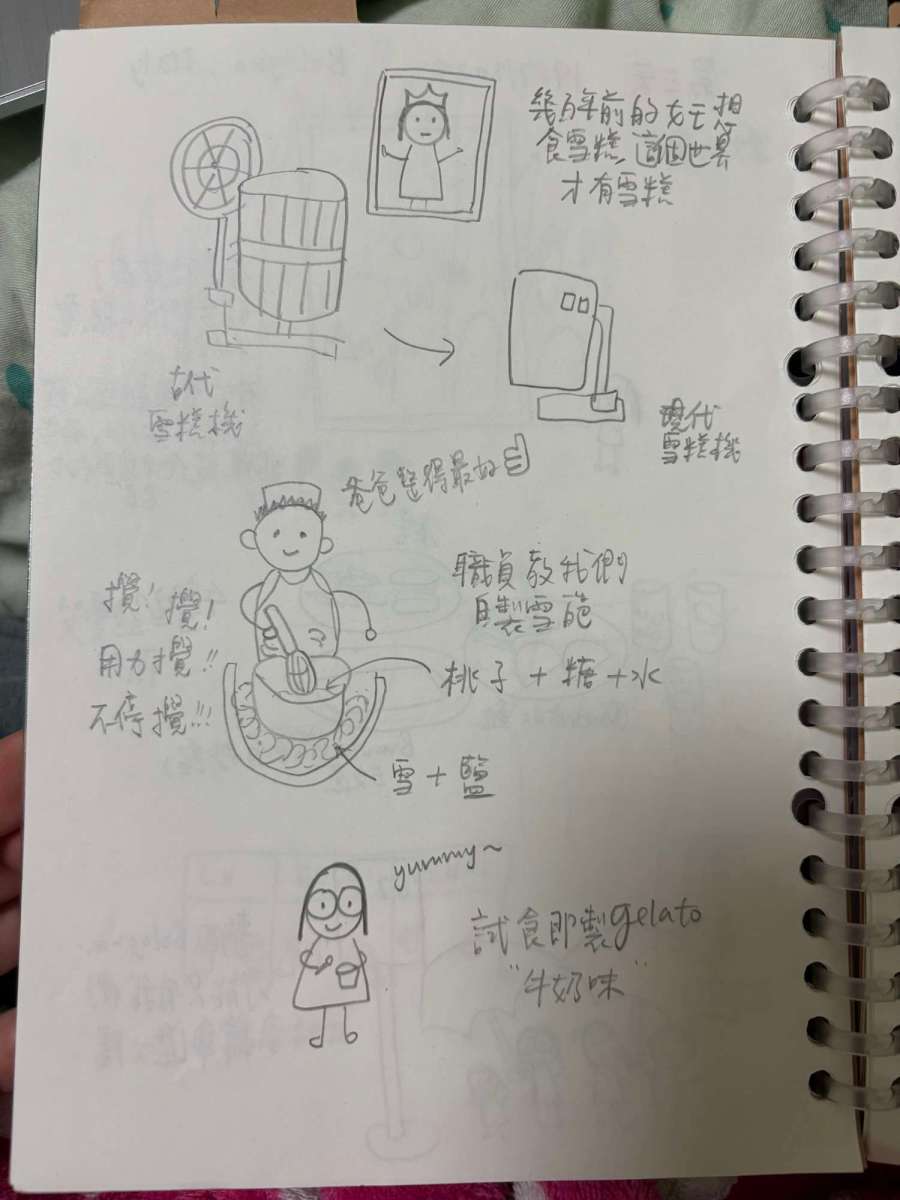 幾百年前的女王想
食雪糕,這個世界
才有雪糕
古代
雪糕機
現代
雪糕機
爸爸整得最好
攪! 攪!
用力攪!!
不停攪!!!
職員教我們
自製雪葩
桃子 + 糖 + 水
雪 + 鹽
yummy~
試食即製gelato
"牛奶味"